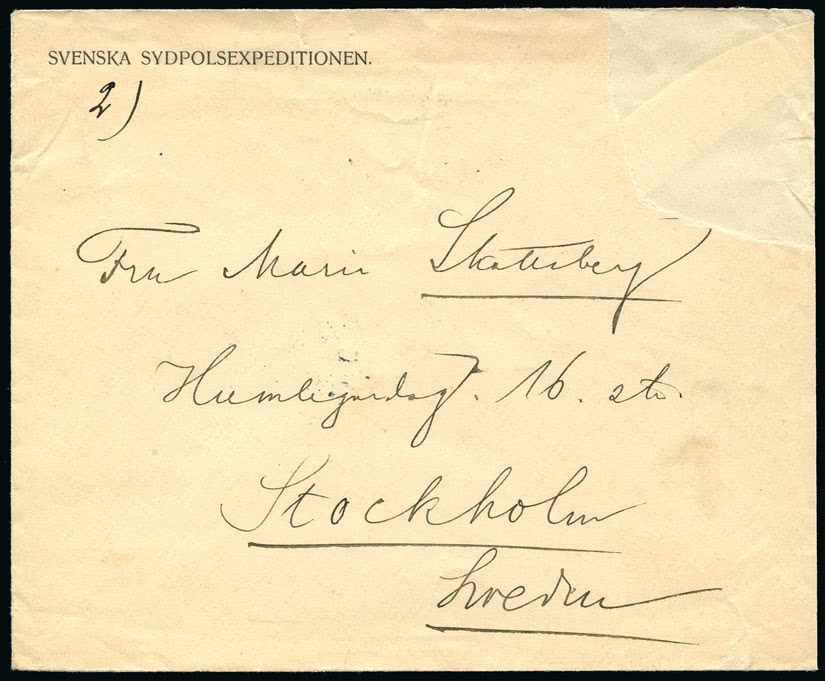 SVENSKA SYDPOLSEXPEDITIONEN.
2)
Fru Marie Skottsberg
Humlegårdsg. 16. ö
Stockholm
Sweden